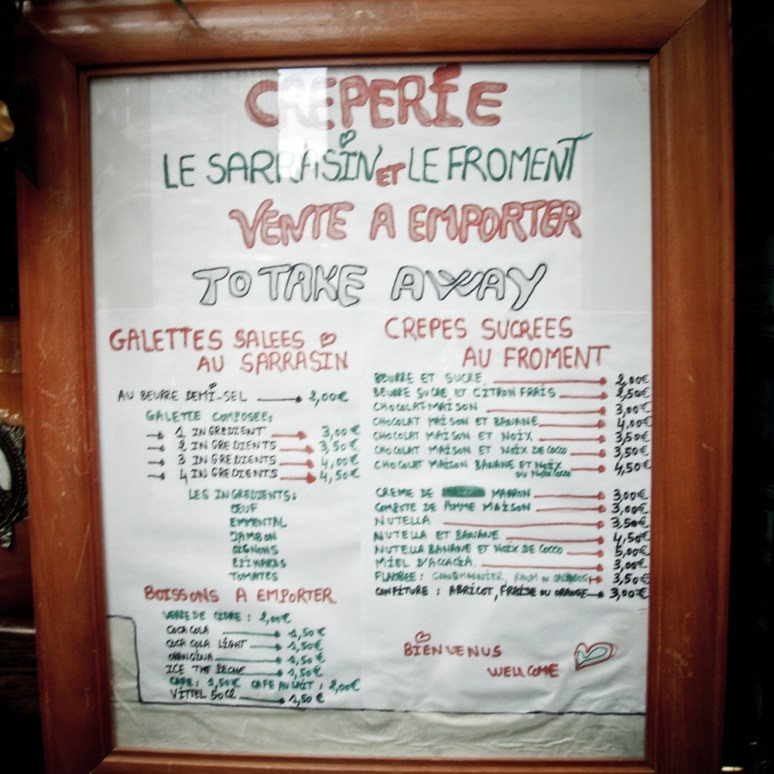 CREPERIE
LE SARRASIN ET LE FROMENT
VENTE A EMPORTER
TO TAKE AWAY
GALETTES SALEES
AU SARRASIN
AU BEURRE DEMI-SEL 2,00€
GALETTE COMPOSEE:
1 INGREDIENT 3,00€
2 INGREDIENTS 3,50€
3 INGREDIENTS 4,00€
4 INGREDIENTS 4,50€
LES INGREDIENTS:
OEUF
EMMENTAL
JAMBON
OIGNONS
EPINARDS
TOMATES
BOISSONS A EMPORTER
VERRE DE CIDRE : 2,00€
COCA COLA 1,50€
COCA COLA LIGHT 1,50€
ORANGINA 1,50€
ICE THE PECHE 1,50€
CAFE : 1,50€ CAFE AU LAIT : 2,00€
VITTEL 50CL 1,50€
CREPES SUCREES
AU FROMENT
BEURRE ET SUCRE 2,00€
BEURRE SUCRE ET CITRON FRAIS 2,50€
CHOCOLAT MAISON 3,00€
CHOCOLAT MAISON ET BANANE 4,00€
CHOCOLAT MAISON ET NOIX 3,50€
CHOCOLAT MAISON ET NOIX DE COCO 3,50€
CHOCOLAT MAISON BANANE ET NOIX 4,50€
OU NOIX COCO
CREME DE MARRON 3,00€
COMPOTE DE POMME MAISON 3,00€
NUTELLA 3,50€
NUTELLA ET BANANE 4,50€
NUTELLA BANANE ET NOIX DE COCO 5,00€
MIEL D'ACCACIA 3,00€
FLAMBEE : GRAND MARNIER, RHUM OU CALVADOS 3,50€
CONFITURE : ABRICOT, FRAISE OU ORANGE 3,00€
BIENVENUS
WELLCOME